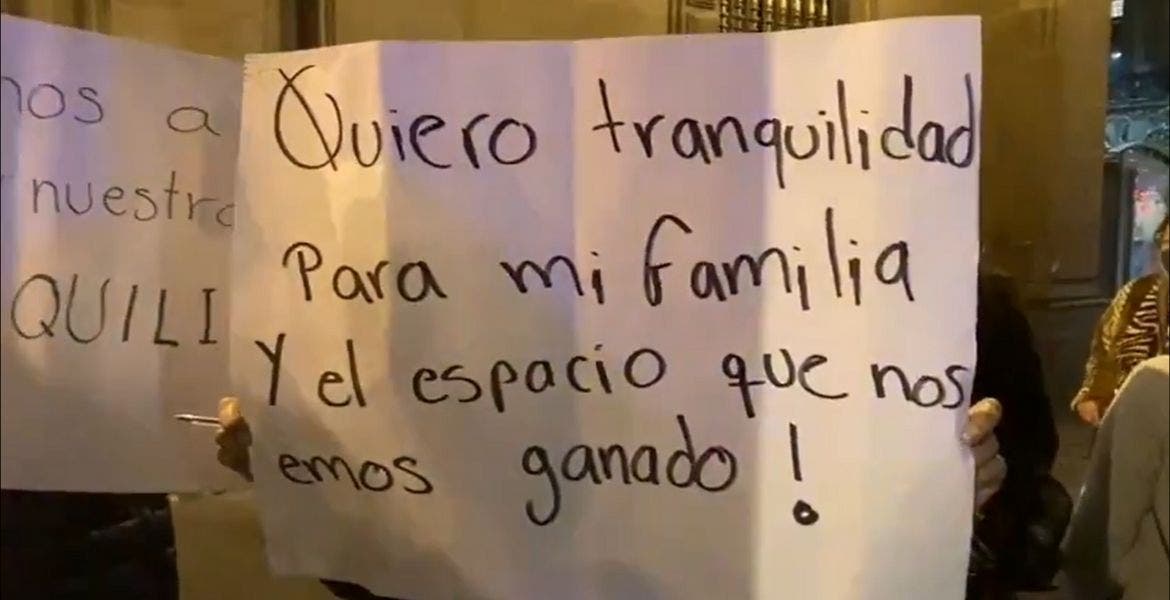 nos a
nuestra
QUILI
Quiero tranquilidad
Para mi familia
Y el espacio que nos
emos ganado!